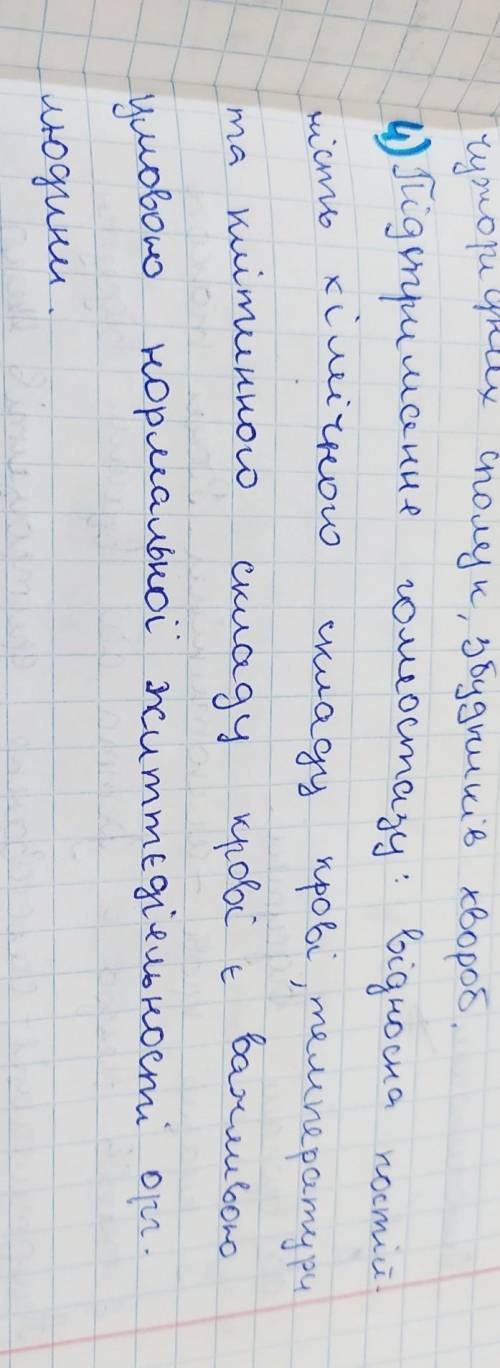 чужорідних сполук, збудників хвороб.
4) Підтримання гомеостазу: відносна постій-
ність хімічного складу крові, температури
та клітинного складу крові є важливою
умовою нормальної життєдіяльності орг.
людини.